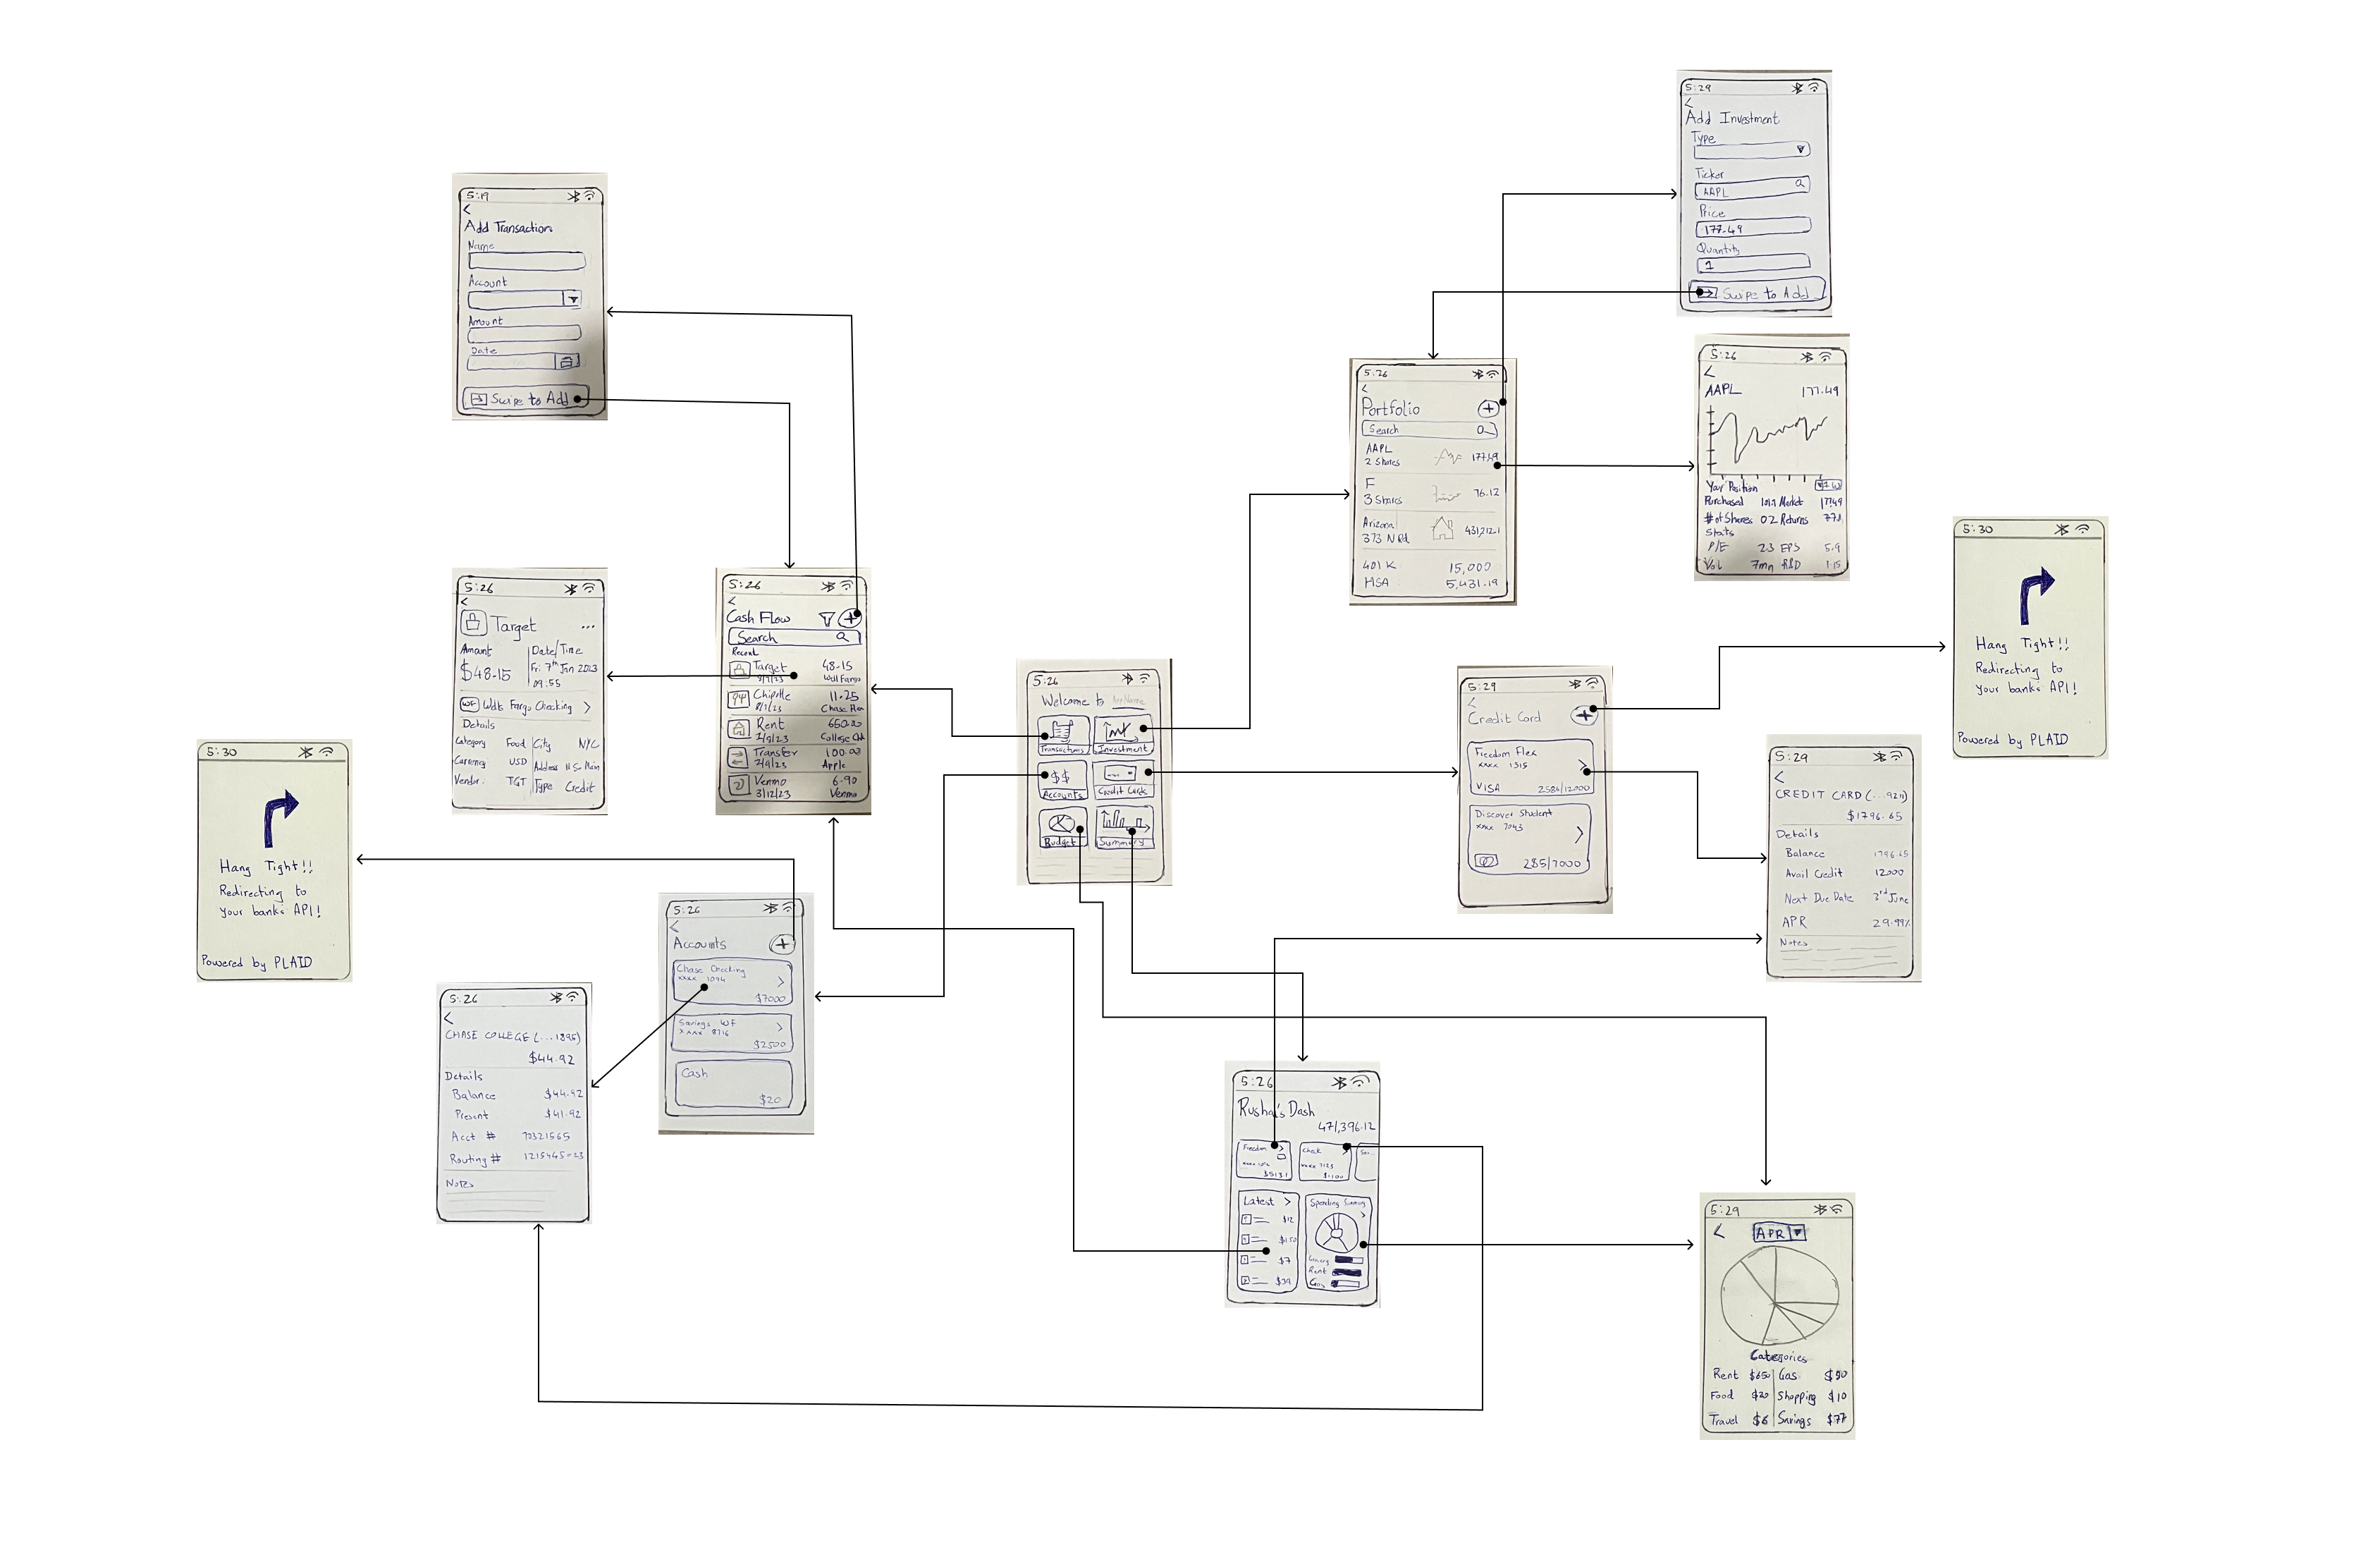 5:29
Add Investment
Type
Ticker
AAPL
Price
177.49
Quantity
1
Swipe to Add
5:19
Add Transaction
Name
Account
Amount
Date
Swipe to Add
5:26
Portfolio
Search
AAPL
2 Shares
177.49
F
3 Shares
76.12
Arizona
373 N Rd
401 K 15,000
HSA 5,431.19
5:26
AAPL 177.49
Your Position
Purchased Market 177.49
# of Shares 02 Returns
Stats
P/E 23 EPS 5.9
Vol 7mn 1.15
5:30
Hang Tight!!
Redirecting to
your banks API!
Powered by PLAID
5:26
Target ...
Amount
$48.15
Date/Time
Fri 7th Jan 2023
09:55
WF Wells Fargo Checking >
Details
Category Food City NYC
Currency USD Address 11 So Main
Vendor: TGT Type Credit
5:26
Cash Flow
Search
Recent
Target 48.15
Well Fargo
Chipotle 11.25
8/7/23
Rent 650.00
1/9/23
Transfer 100.00
2/9/23 Apple
Venmo 6.90
3/12/23 Venmo
5:26
Welcome to App Name
Transactions Investment
$$
Accounts Credit Cards
Budget Summary
5:29
Credit Card
Freedom Flex
xxxx 1315
VISA 2586/12000
Discover Student
xxxx 7043
285/7000
5:29
CREDIT CARD (...9211)
$1796.65
Details
Balance 1796.65
Avail Credit 12000
Next Due Date 3rd June
APR 29.99%
Notes
5:30
Hang Tight!!
Redirecting to
your banks API!
Powered by PLAID
5:26
Accounts
Chase Checking
xxxx 1094
$7000
Savings WF
xxxx 8716
$2500
Cash
$20
5:26
CHASE COLLEGE (...1895)
$44.92
Details
Balance $44.92
Present $41.92
Acct # 70321565
Routing #
Notes
5:26
Rusha's Dash
471,396.12
Freedom >
Check
xxxx 7123
$1100
Latest >
$12
$150
$7
$39
Spending
Rent
Gas
5:29
APR
Categories
Rent $650 Gas $90
Food $20 Shopping $10
Travel $6 Savings $77